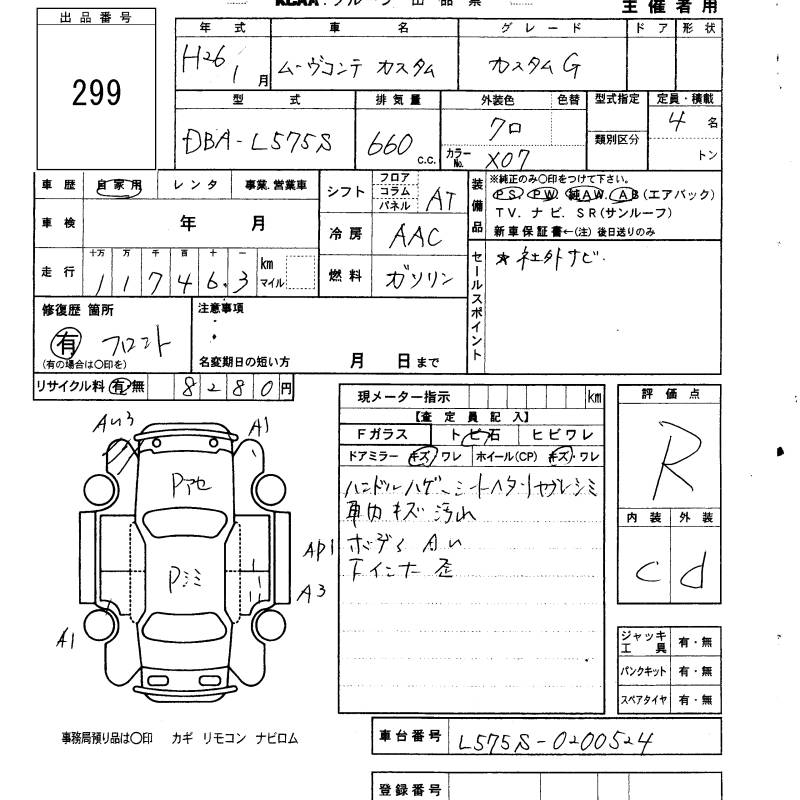 KCAA
主催者用
出品番号
299
年式 車名 グレード ドア 形状
H26 1月 ムーヴコンテ カスタム カスタムG
型式 排気量 外装色 色替 型式指定 定員・積載
DBA-L575S 660 c.c. クロ 4名
カラーNo. X07 類別区分 トン
車歴 自家用 レンタ 事業.営業車
車検 年 月
走行 十万 万 千 百 十 一 km マイル
117463
シフト フロア コラム パネル AT
冷房 AAC
燃料 ガソリン
装備品 ※純正のみ○印をつけて下さい。
PS PW 純AW. AB(エアバック)
TV. ナビ. SR(サンルーフ)
新車保証書←(注) 後日送りのみ
セールスポイント
★社外ナビ.
修復歴 箇所
有 フロント
(有の場合は○印を)
注意事項
名変期日の短い方 月 日まで
リサイクル料 有 無 8280円
現メーター指示 km
【査定員記入】
Fガラス トビ石 ヒビワレ
ドアミラー キズ ワレ ホイール(CP) キズ・ワレ
ハンドルハゲ、シートヘタリヤブレシミ
車内キズ 汚れ
ボディ Aい
下インナー 歪
評価点
R
内装 外装
C d
ジャッキ工具 有・無
パンクキット 有・無
スペアタイヤ 有・無
A1
Pアセ
Pシミ
AP1
A3
A1
事務局預り品は○印 カギ リモコン ナビロム
車台番号 L575S-0200524
登録番号